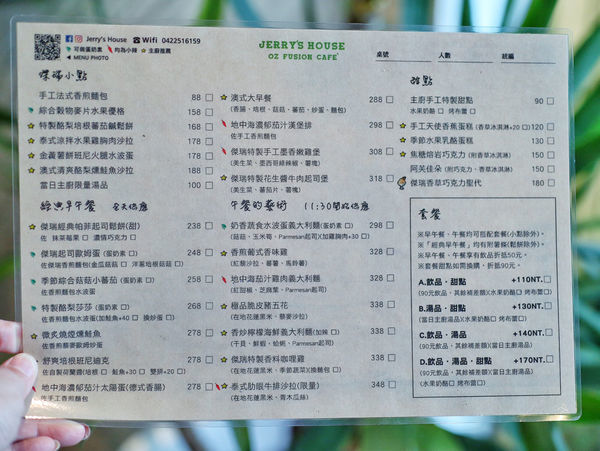 Jerry's House ☎ Wifi 0422516159
可做蛋奶素 均為小辣 主廚推薦
◀ MENU PHOTO
JERRY'S HOUSE
OZ FUSION CAFE'
桌號 人數 統編
傑瑞小點
手工法式香煎麵包 88
綜合穀物麥片水果優格 158
特製酪梨培根蕃茄鹹鬆餅 168
泰式涼拌水果雞胸肉沙拉 178
金黃薯餅班尼火腿水波蛋 178
澳式清爽酪梨燻鮭魚沙拉 188
當日主廚限量湯品 100
經典早午餐 全天供應
傑瑞經典帕菲起司鬆餅(甜) 238
佐 抹茶莓果 濃情巧克力
傑瑞起司歐姆蛋 (蛋奶素) 248
佐傑瑞香煎麵包(金瓜菇菇 洋蔥培根菇菇)
季節綜合菇菇小蕃茄 (蛋奶素) 258
佐香煎麵包水波蛋
特製酪梨莎莎 (蛋奶素) 268
佐香煎麵包水波蛋(加鮭魚+40 換炒蛋)
微炙燒煙燻鮭魚 288
佐香煎蕎麥歐姆炒蛋
舒爽培根班尼迪克 278
佐自製荷蘭醬(培根 鮭魚+30 雙拼+20)
地中海濃郁茄汁太陽蛋(德式香腸) 278
佐手工香煎麵包
澳式大早餐 288
(香腸、培根、菇菇、蕃茄、炒蛋、麵包)
地中海濃郁茄汁漢堡排 298
佐手工香煎麵包
傑瑞特製手工墨香嫩雞堡 308
(美生菜、墨西哥綠辣椒、薯塊)
傑瑞特製花生醬牛肉起司堡 318
(美生菜、蕃茄片、薯塊)
午餐的藝術 11:30開始供應
奶香蔬食水波蛋義大利麵(蛋奶素) 298
(菇菇、玉米筍、Parmesan起司)(加雞胸肉+30)
香煎葡式香味雞 328
(紅酸沙拉、蕃薯、馬鈴薯)
地中海茄汁雞肉義大利麵 328
(紅甜椒、芝麻葉、Parmesan起司)
極品脆皮豬五花 338
(在地花蓮黑米、蕎麥沙拉)
香炒檸檬海鮮義大利麵(加辣) 338
(干貝、鮮蝦、蛤蜊、Parmesan起司)
傑瑞特製香料咖哩雞 338
(在地花蓮黑米、季節蔬菜)(換麵包)
泰式肋眼牛排沙拉(限量) 348
(在地花蓮黑米、青木瓜絲)
甜點
主廚手工特製甜點 90
水果奶酪 烤布蕾
手工天使香蕉蛋糕 (香草冰淇淋+20) 120
季節水果乳酪蛋糕 130
焦糖熔岩巧克力 (附香草冰淇淋) 150
阿芙佳朵 (附香草冰淇淋) 150
傑瑞香草巧克力聖代 180
套餐
※早午餐、午餐均可搭配套餐(小點除外)。
※「經典早午餐」均有附薯條(鬆餅除外)。
※早午餐、午餐享有飲品折抵50元。
※套餐甜點如需換購，折抵90元。
A.飲品·甜點 +110NT.
(90元飲品，其餘補差額)(水果奶酪 烤布蕾)
B.湯品·甜點 +130NT.
(當日主廚湯品)(水果奶酪 烤布蕾)
C.飲品·湯品 +140NT.
(90元飲品，其餘補差額)(當日主廚湯品)
D.飲品·湯品·甜點 +170NT.
(90元飲品，其餘補差額)(當日主廚湯品)
(水果奶酪 烤布蕾)